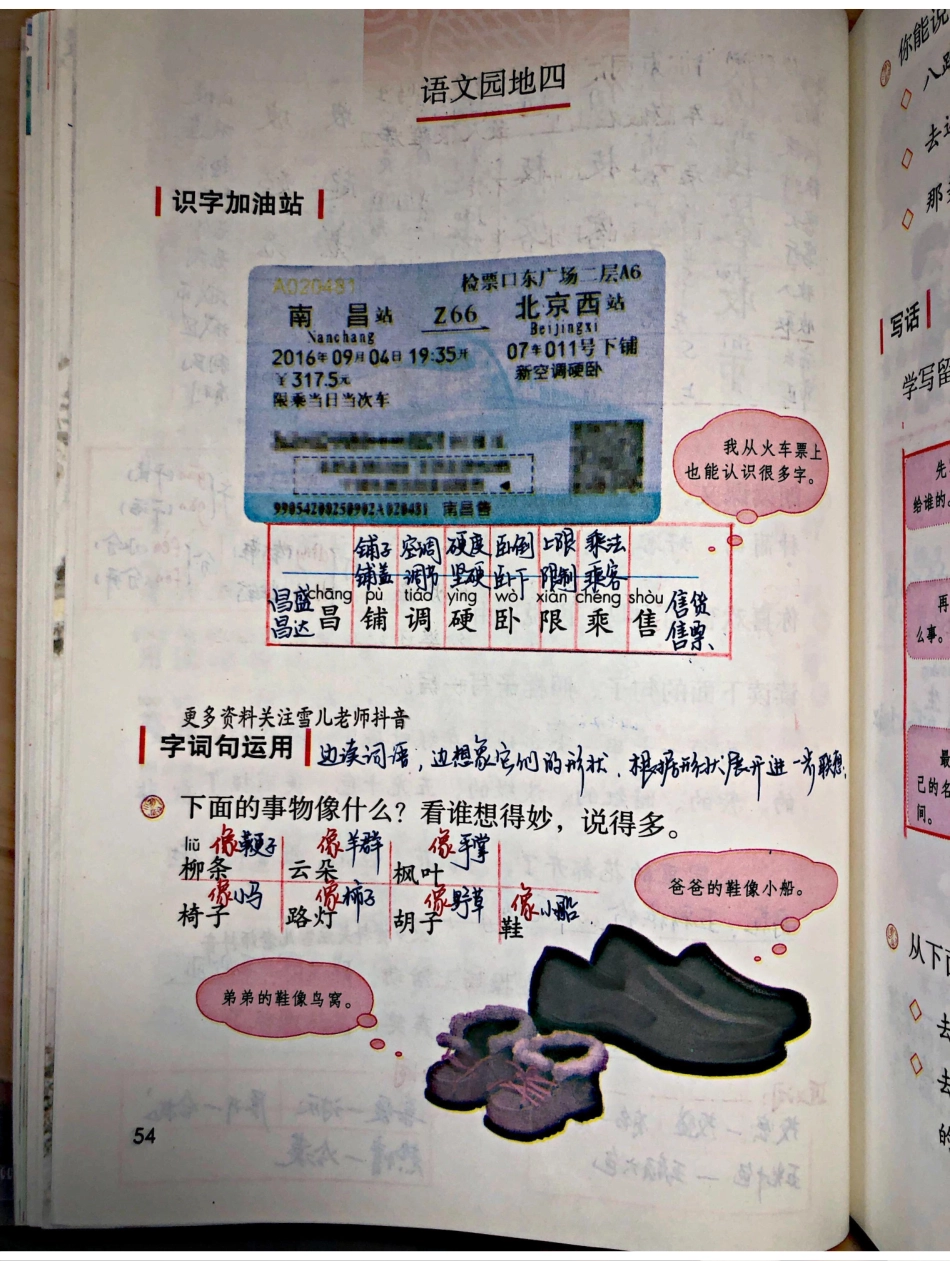 语文园地四
识字加油站
A020481 检票口东广场二层A6
南 昌站 Z66 北京西站
Nanchang Beijingxi
2016年09月04日 19:35开 07车011号下铺
￥317.5元 新空调硬卧
限乘当日当次车
我从火车票上
也能认识很多字。
99054200250902A020481 南昌售
铺子 空调 硬度 卧倒 上限 乘法
铺盖 调节 坚硬 卧下 限制 乘客
chāng pù tiáo yìng wò xiàn chéng shòu
昌盛 昌 铺 调 硬 卧 限 乘 售 售货
昌达 售票
更多资料关注雪儿老师抖音
字词句运用 边读词语，边想象它们的形状，根据形状展开进一步联想。
下面的事物像什么？看谁想得妙，说得多。
liǔ
柳条 像鞭子 云朵 像羊群 枫叶 像手掌
椅子 像小马 路灯 像柿子 胡子 像野草 鞋 像小船
爸爸的鞋像小船。
弟弟的鞋像鸟窝。
54
你能说
八路
去过
那
写话
学写留
先
给谁的。
再
么事。
最
己的名
间。
从下面
去
去
的